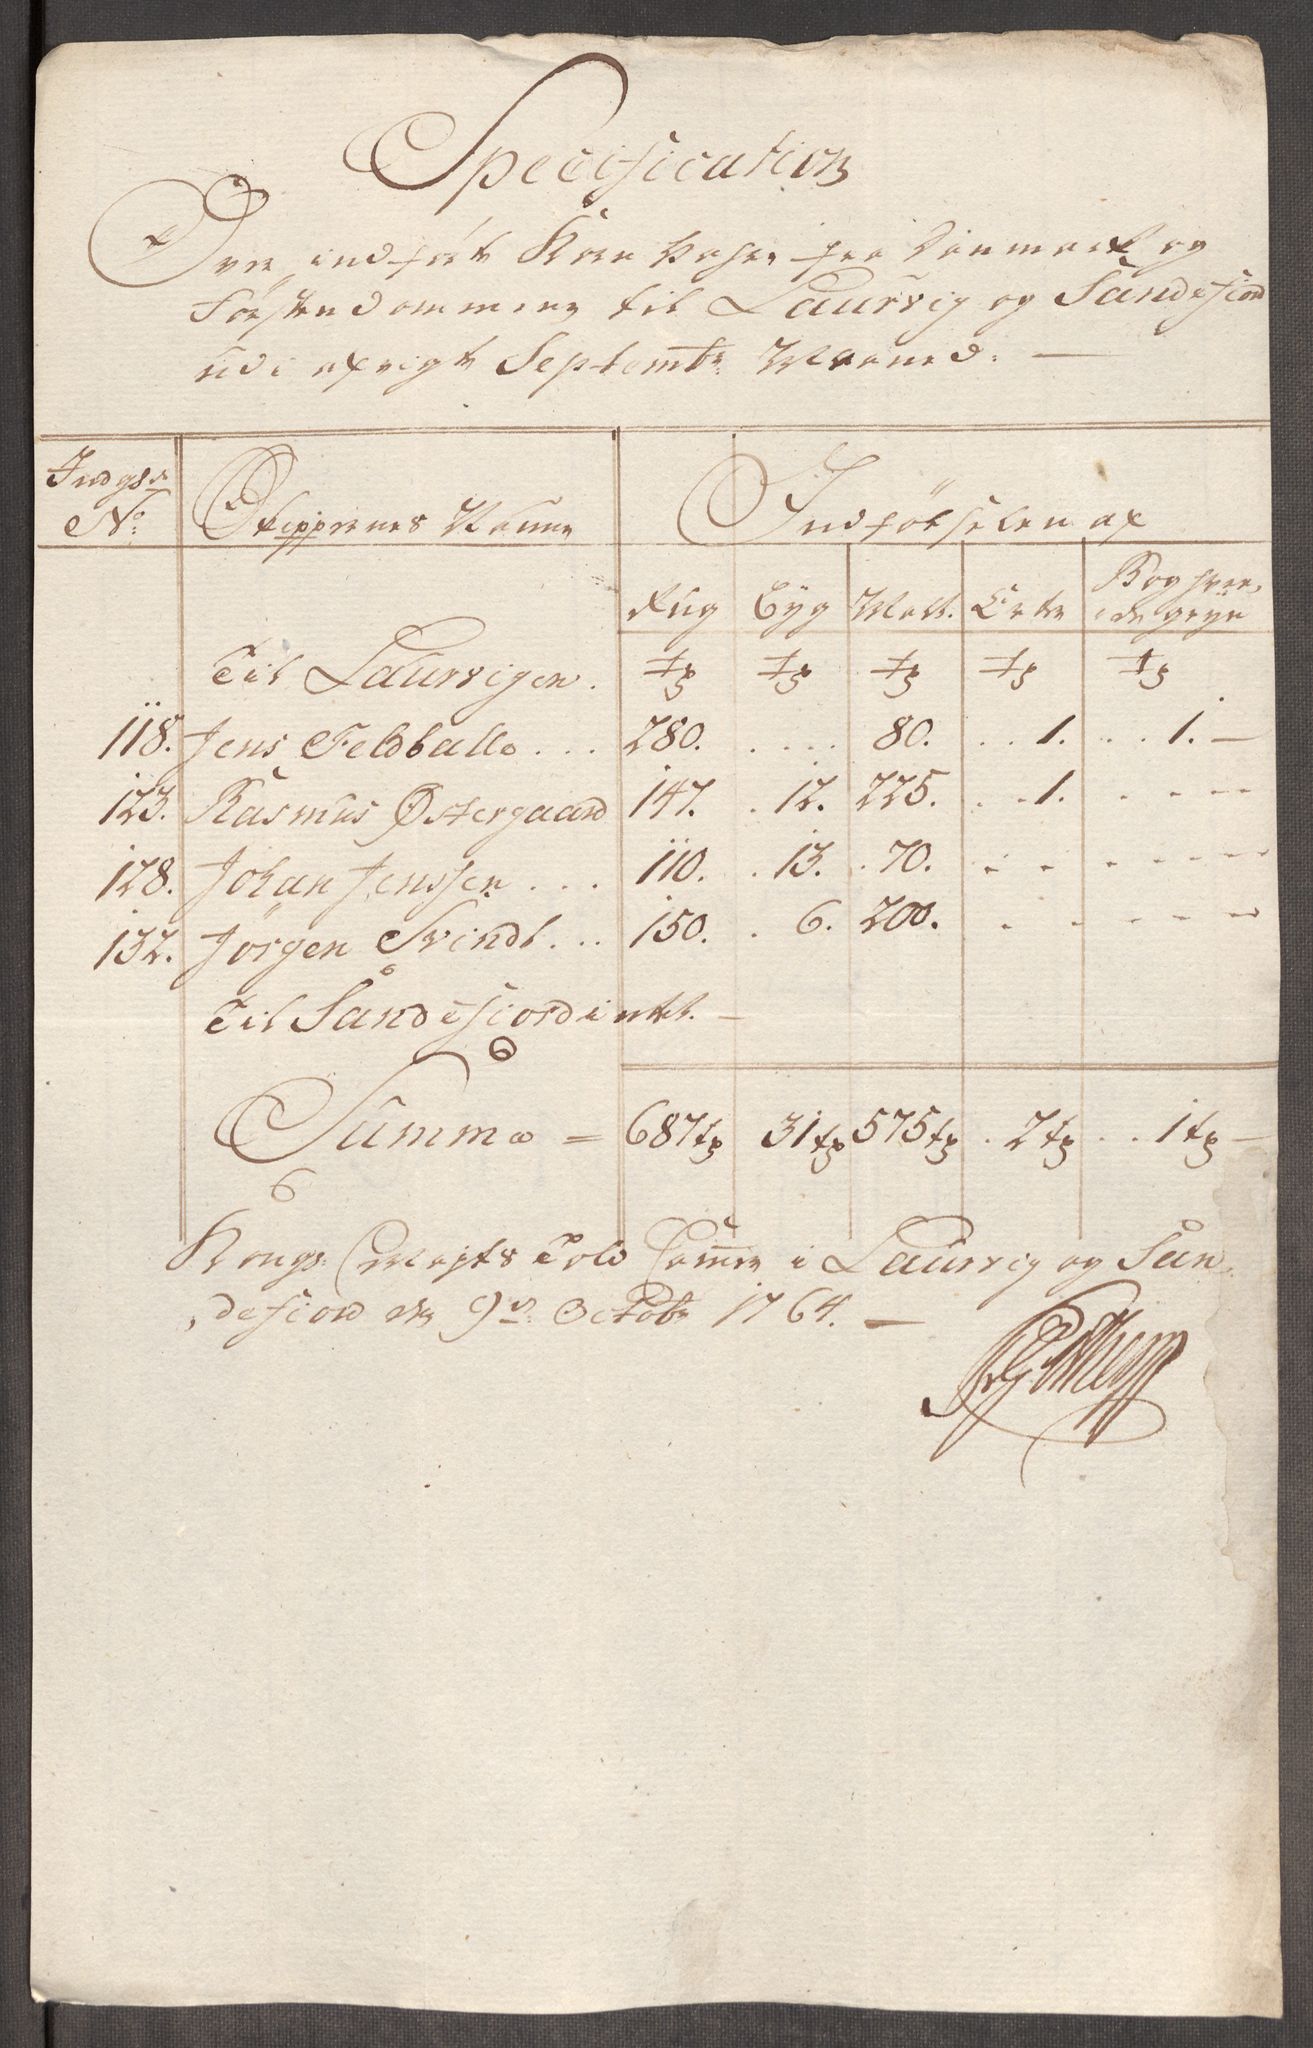 Specification
Over indført Korn Vahre fra Danmark og
Førstendommene til Laurvig og Sandefiord
udi afvigte Septembr Maaned. —
Indgs:
No: Skippernes Nafne Indførselen af
Rug Byg Malt. Erter Boghvee,
,de gryn
Til Laurvigen. tr tr tr tr tr
118. Jens Feldballe . . . 280. . . . . 80. . . 1. . . 1. —
123. Rasmus Østergaard 147. . 12. 225. . . 1. - - - -
128. Johan Jenssen . . . 110. . 13. . 70. - - - - - - -
132. Jörgen Svindt . . . 150. . 6. 200. - - - - - -
Til Sandefiord intet. —
Summa = 687 tr 31 tr 575 tr . 2 tr . . 1 tr —
Kongs: Mayts Told Cammer i Laurvig og San,
,defiord den 9de Octobr 1764. —